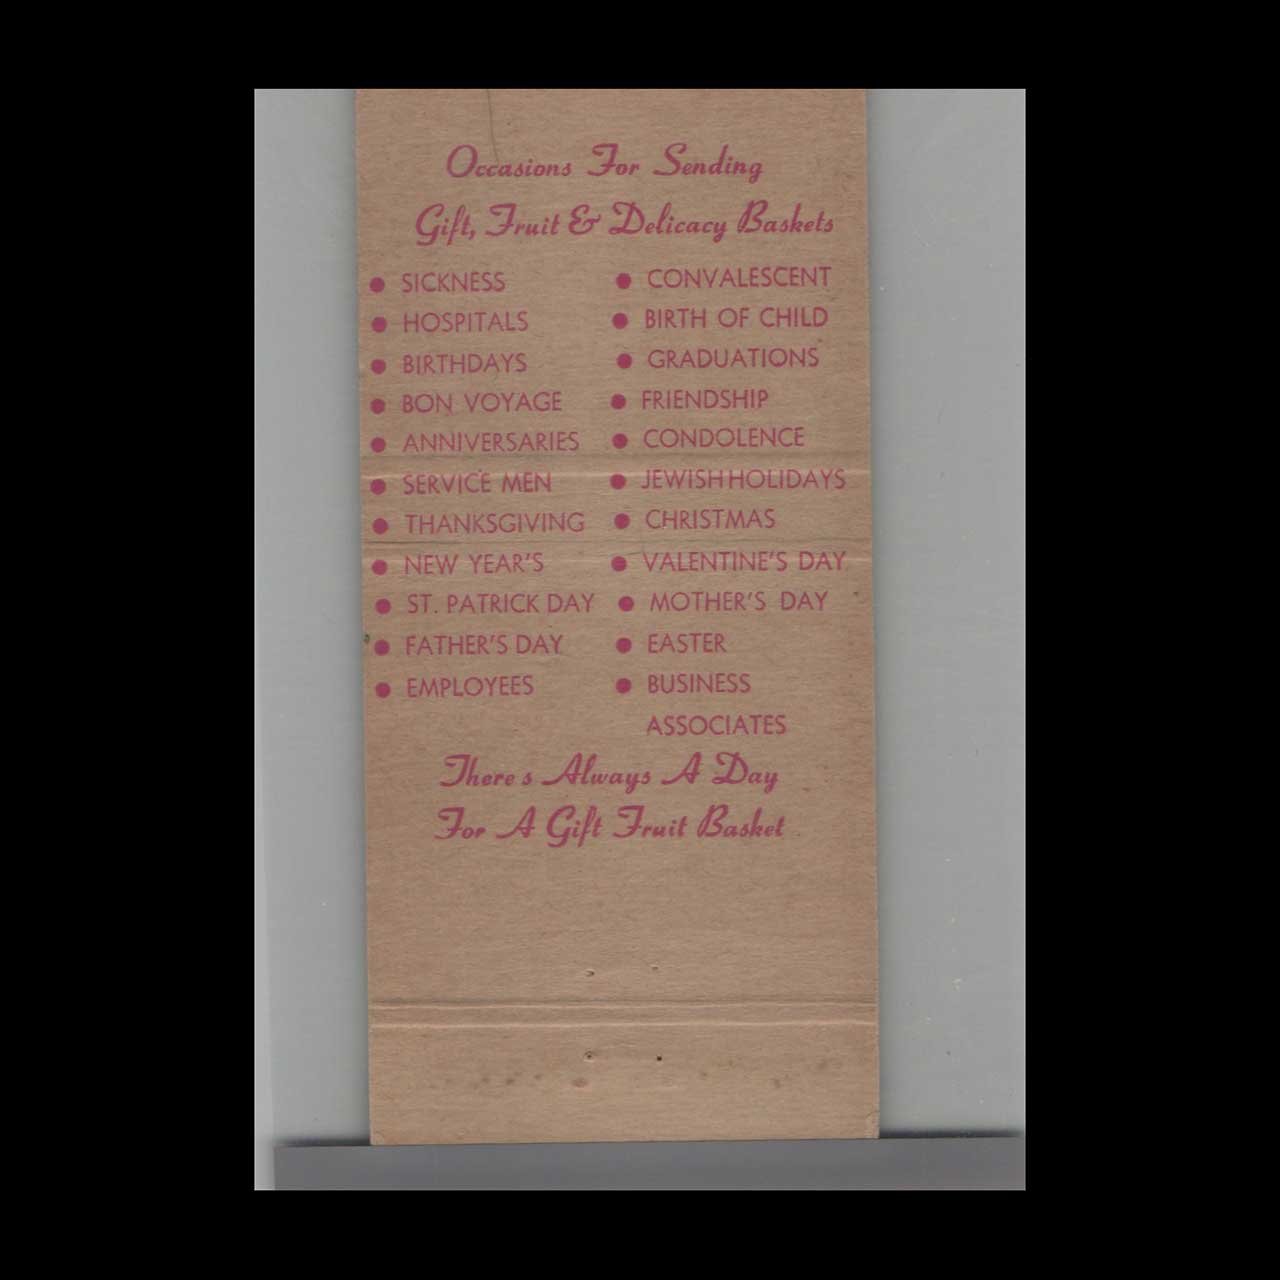 Occasions For Sending
Gift, Fruit & Delicacy Baskets
• SICKNESS
• HOSPITALS
• BIRTHDAYS
• BON VOYAGE
• ANNIVERSARIES
• SERVICE MEN
• THANKSGIVING
• NEW YEAR'S
• ST. PATRICK DAY
• FATHER'S DAY
• EMPLOYEES
• CONVALESCENT
• BIRTH OF CHILD
• GRADUATIONS
• FRIENDSHIP
• CONDOLENCE
• JEWISH HOLIDAYS
• CHRISTMAS
• VALENTINE'S DAY
• MOTHER'S DAY
• EASTER
• BUSINESS
ASSOCIATES
There s Always A Day
For A Gift Fruit Basket